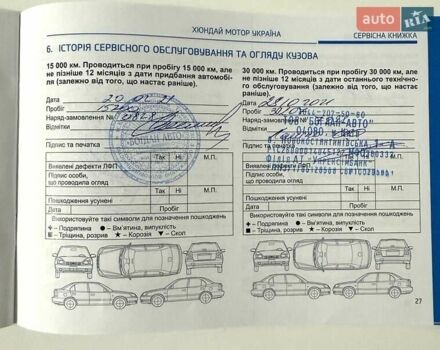 auto RIA
ХЮНДАЙ МОТОР УКРАЇНА
СЕРВІСНА КНИЖКА
6. ІСТОРІЯ СЕРВІСНОГО ОБСЛУГОВУВАННЯ ТА ОГЛЯДУ КУЗОВА
15 000 км. Проводиться при пробігу 15 000 км, але
не пізніше 12 місяців з дати придбання автомобі-
ля (залежно від того, що настає раніше).
Дата
Пробіг
Наряд-замовлення №
Відмітки
"БОГДАН-АВТО
Підпис та печатка
Виявлені дефекти ЛФП Так Ні М.П.
Підпис особи,
що проводила огляд
Пошкодження усунені Так Ні М.П.
Дата Пробіг
Використовуйте такі символи для позначення пошкоджень
+ – Подряпина ● – Вм'ятина, випуклість
■ – Тріщина, розрив ★ – Корозія ▼ – Скол
30 000 км. Проводиться при пробігу 30 000 км, але
не пізніше 12 місяців з дати останнього технічно-
го обслуговування (залежно від того, що настає
раніше).
Дата
Пробіг
Наряд-замовлення №
ТОВ "БОГДАН-АВТО"
Відмітки
Підпис та печатка
Виявлені дефекти ЛФП
Підпис особи,
що проводила огляд
Пошкодження усунені Так Ні М.П.
Дата Пробіг
Використовуйте такі символи для позначення пошкоджень
+ – Подряпина ● – Вм'ятина, випуклість
■ – Тріщина, розрив ★ – Корозія ▼ – Скол
27